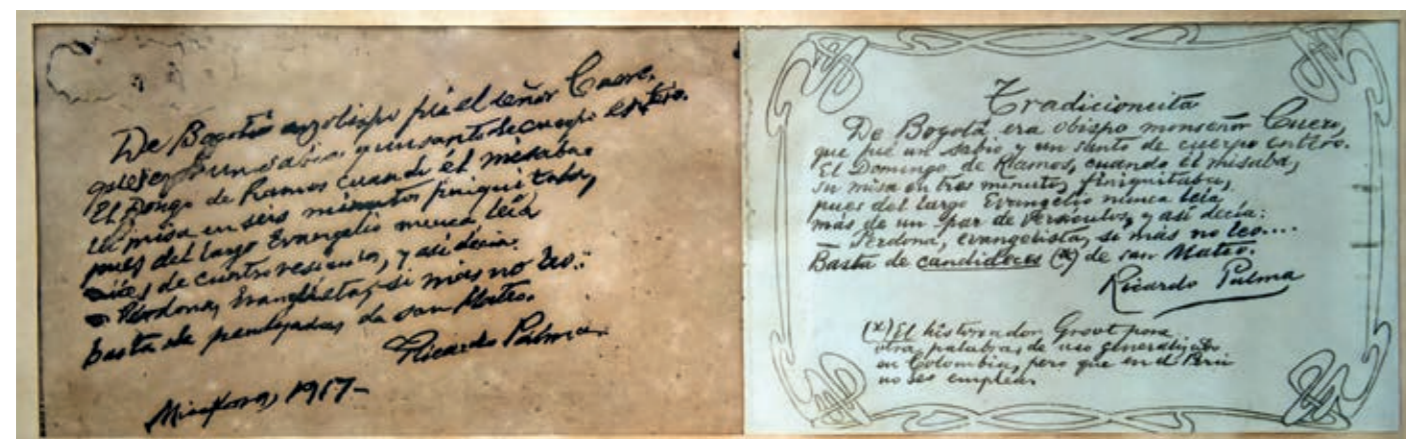 De Bogotá arzobispo fué el señor Cuero,
que fué un sabio y un santo de cuerpo entero.
El Dongo de Ramos cuando él misaba
la misa en seis minutos finiquitaba,
pues del largo Evangelio nunca leía
más de cuatro versículos, y así decía:
Perdona, Evangelista, si más no leo.:
basta de pendejadas de san Mateo.
Ricardo Palma
Miraflores, 1917-
Tradicioncita
De Bogotá era obispo monseñor Cuero,
que fué un sabio y un santo de cuerpo entero.
El Domingo de Ramos, cuando él misaba,
su misa en tres minutos finiquitaba,
pues del largo Evangelio nunca leía
más de un par de versículos, y así decía:
– Perdona, evangelista, si más no leo....
Basta de candideces (x) de san Mateo.
Ricardo Palma
(x) El historiador Groot pone
otra palabra, de uso generalizado
en Colombia, pero que en el Perú
no se emplea.